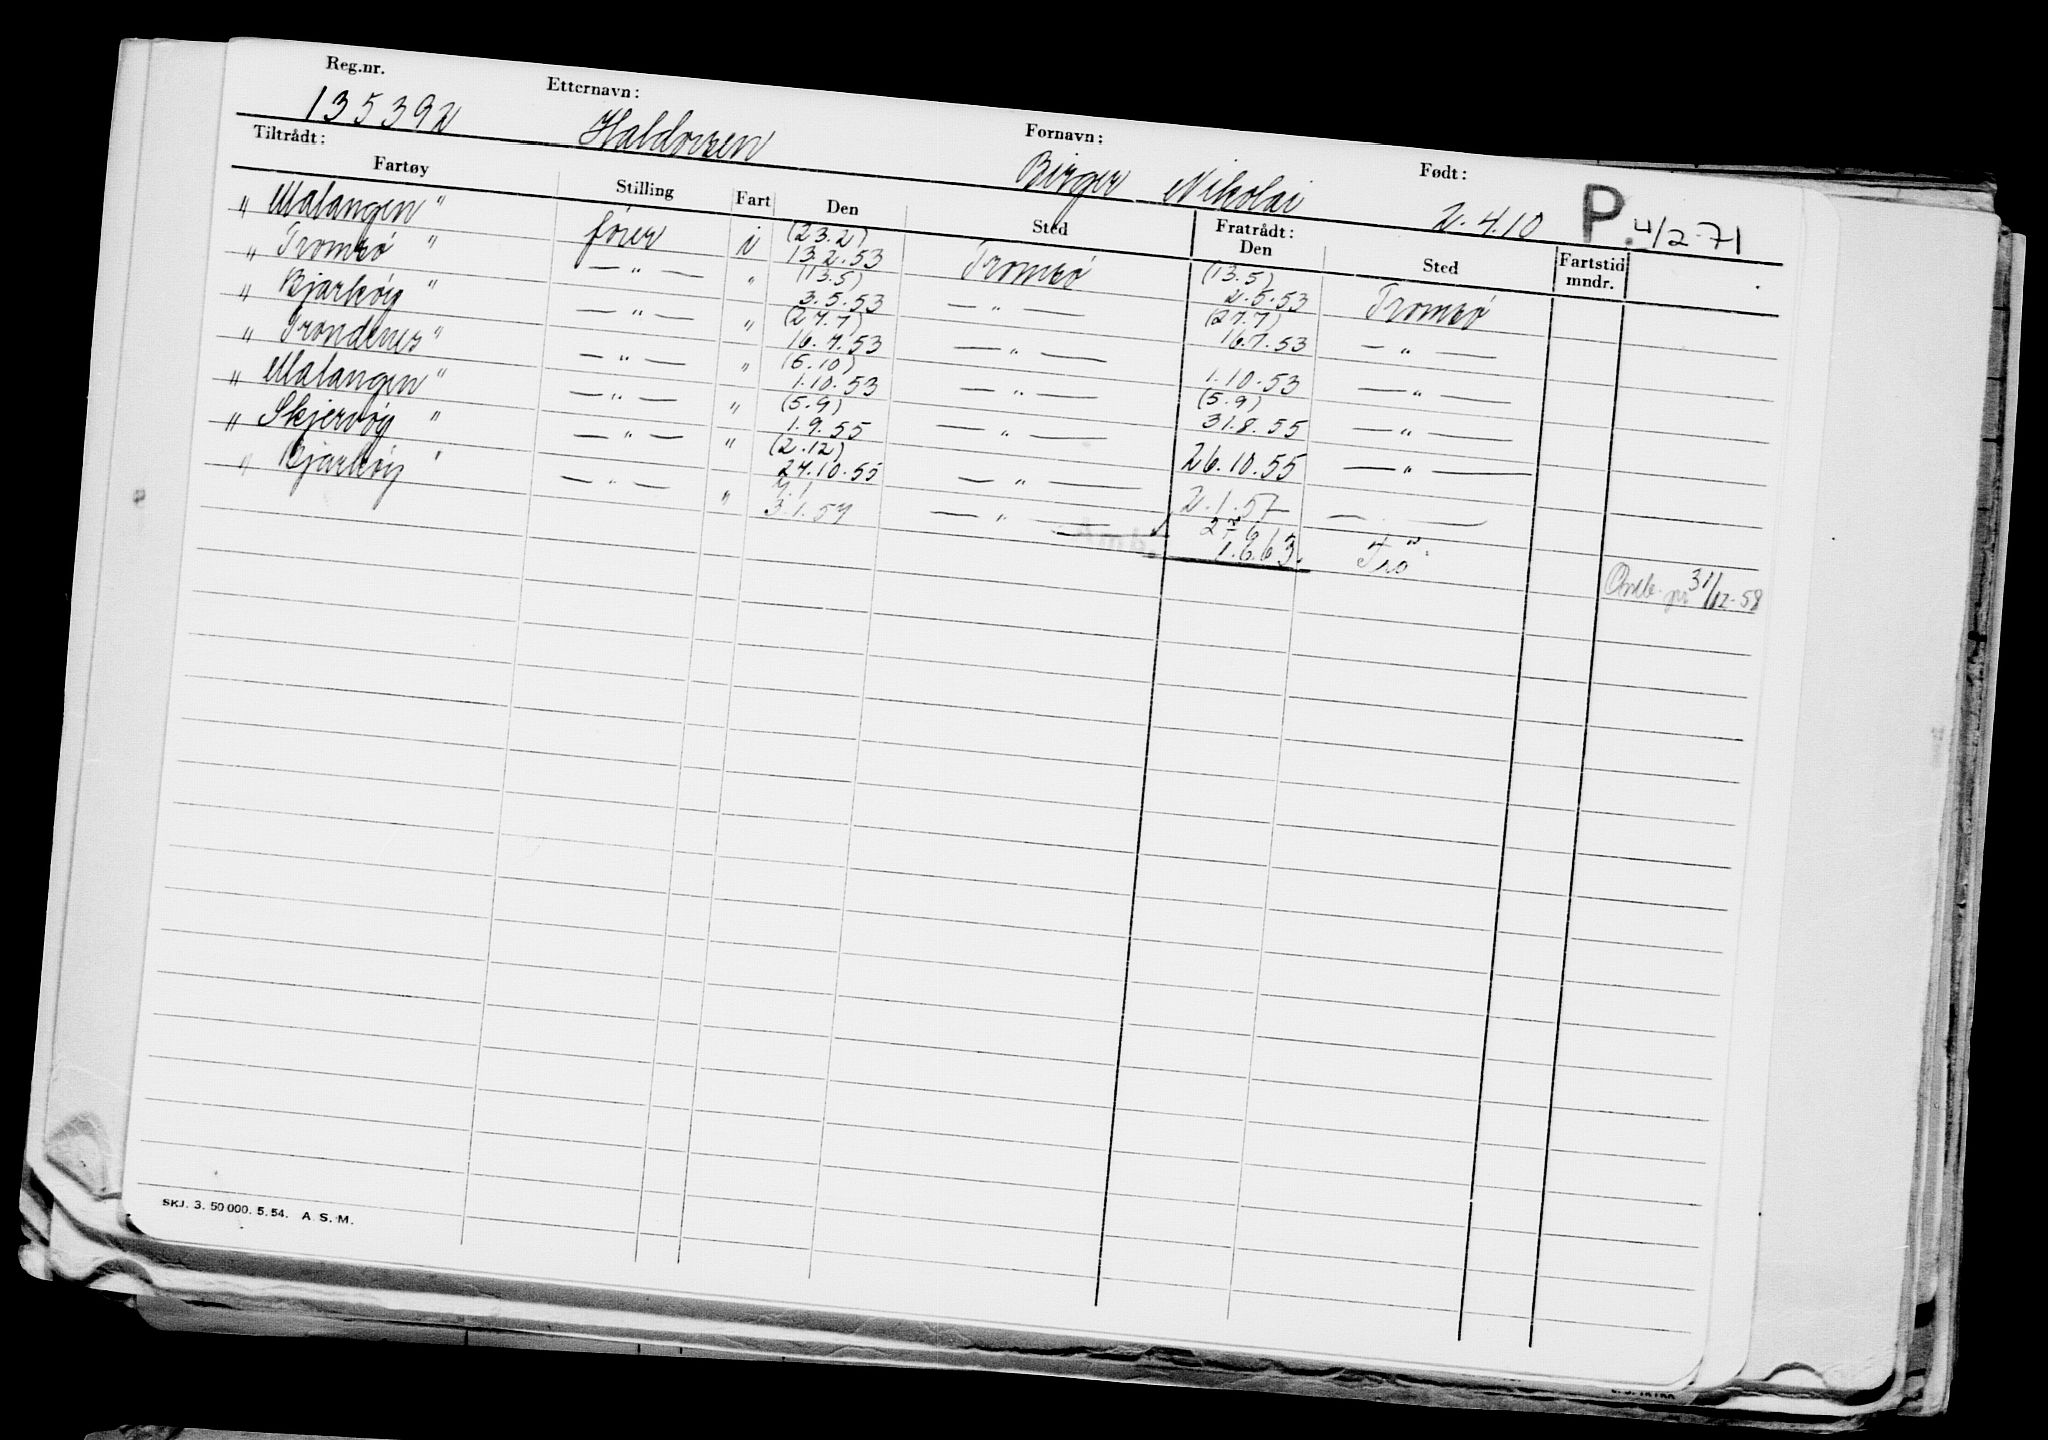 Reg.nr. Etternavn: Fornavn: Født:
135392 Haldorsen Birger Nikolai 2.4.10 P. 4/2-71
Tiltrådt: Fratrådt:
Fartøy Stilling Fart Den Sted Den Sted Fartstid mndr.
"Malangen" fører i (23.2) 13.2.53 Tromsø (13.5) 2.5.53 Tromsø
"Tromsø" — " — " (13.5) 3.5.53 — " — (27.7) 16.7.53 — " —
"Bjarkøy" — " — " (27.7) 16.7.53 — " — 1.10.53 — " —
"Trondenes" — " — " (6.10) 1.10.53 — " — (5.9) 31.8.55 — " —
"Malangen" — " — " (5.9) 1.9.55 — " — 26.10.55 — " —
"Skjervøy" — " — " (2.12) 27.10.55 — " — 2.1.57 — " —
"Bjarkøy" — " — " 7.1 3.1.57 — " — 1.6.63. Trø
31/12-58
SKJ. 3. 50 000. 5. 54. A. S. M.